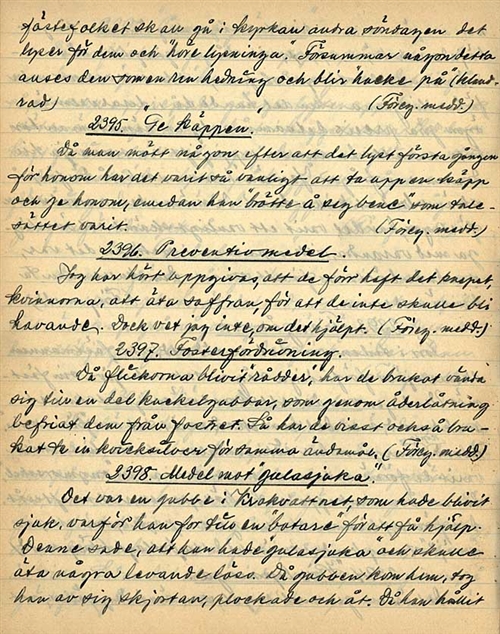 fästefolket skall gå i kyrkan andra söndagen det
lyser för dem och "höre lysninga". Försummar någon detta
anses den som en ren hedning och blir hacke på (kland-
rad) (Föreg. medd.)
2395. "Ge käppen."
Då man mött någon efter att det lyst första gången
för honom har det varit så vanligt att ta upp en käpp
och ge honom, emedan han "brôtte å seg bene" som tale-
sättet varit. (Föreg. medd.)
2396. Preventivmedel.
Jag har hört uppgivas, att de förr haft det knepet,
kvinnorna, att äta saffran, för att de inte skulle bli
havande. Dock vet jag inte, om det hjälpt. (Föreg. medd.)
2397. Fosterfördrivning.
Då flickorna blivit "rädder", har de brukat vända
sig till en del kackelgubbar, som genom åderlåtning
befriat dem från fostret. Så har de visst också bru-
kat te in kvicksilver för samma ändamål. (Föreg. medd.)
2398. Medel mot "gulasjuka".
Det var en gubbe i Krokvattnet, som hade blivit
sjuk, varför han for till en "botare" för att få hjälp.
Denne sade, att han hade "gulasjuka" och skulle
äta några levande löss. Då gubben kom hem, tog
han av sig skjortan, plockade och åt. Då han hållit